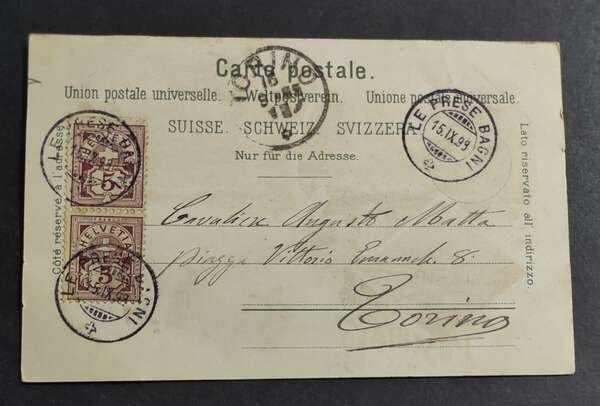 Carte postale.
Union postale universelle. Weltpostverein. Unione postale universale.
SUISSE. SCHWEIZ. SVIZZERA.
Nur für die Adresse.
Côté réservé à l'adresse.
Lato riservato all' indirizzo.
TORINO
LE PRESE BAGNI
15.IX.99
LE PRESE BAGNI
5
HELVETIA
5
LE PRESE BAGNI
Cavaliere Augusto Matta
piazza Vittorio Emanuele 8.
Torino